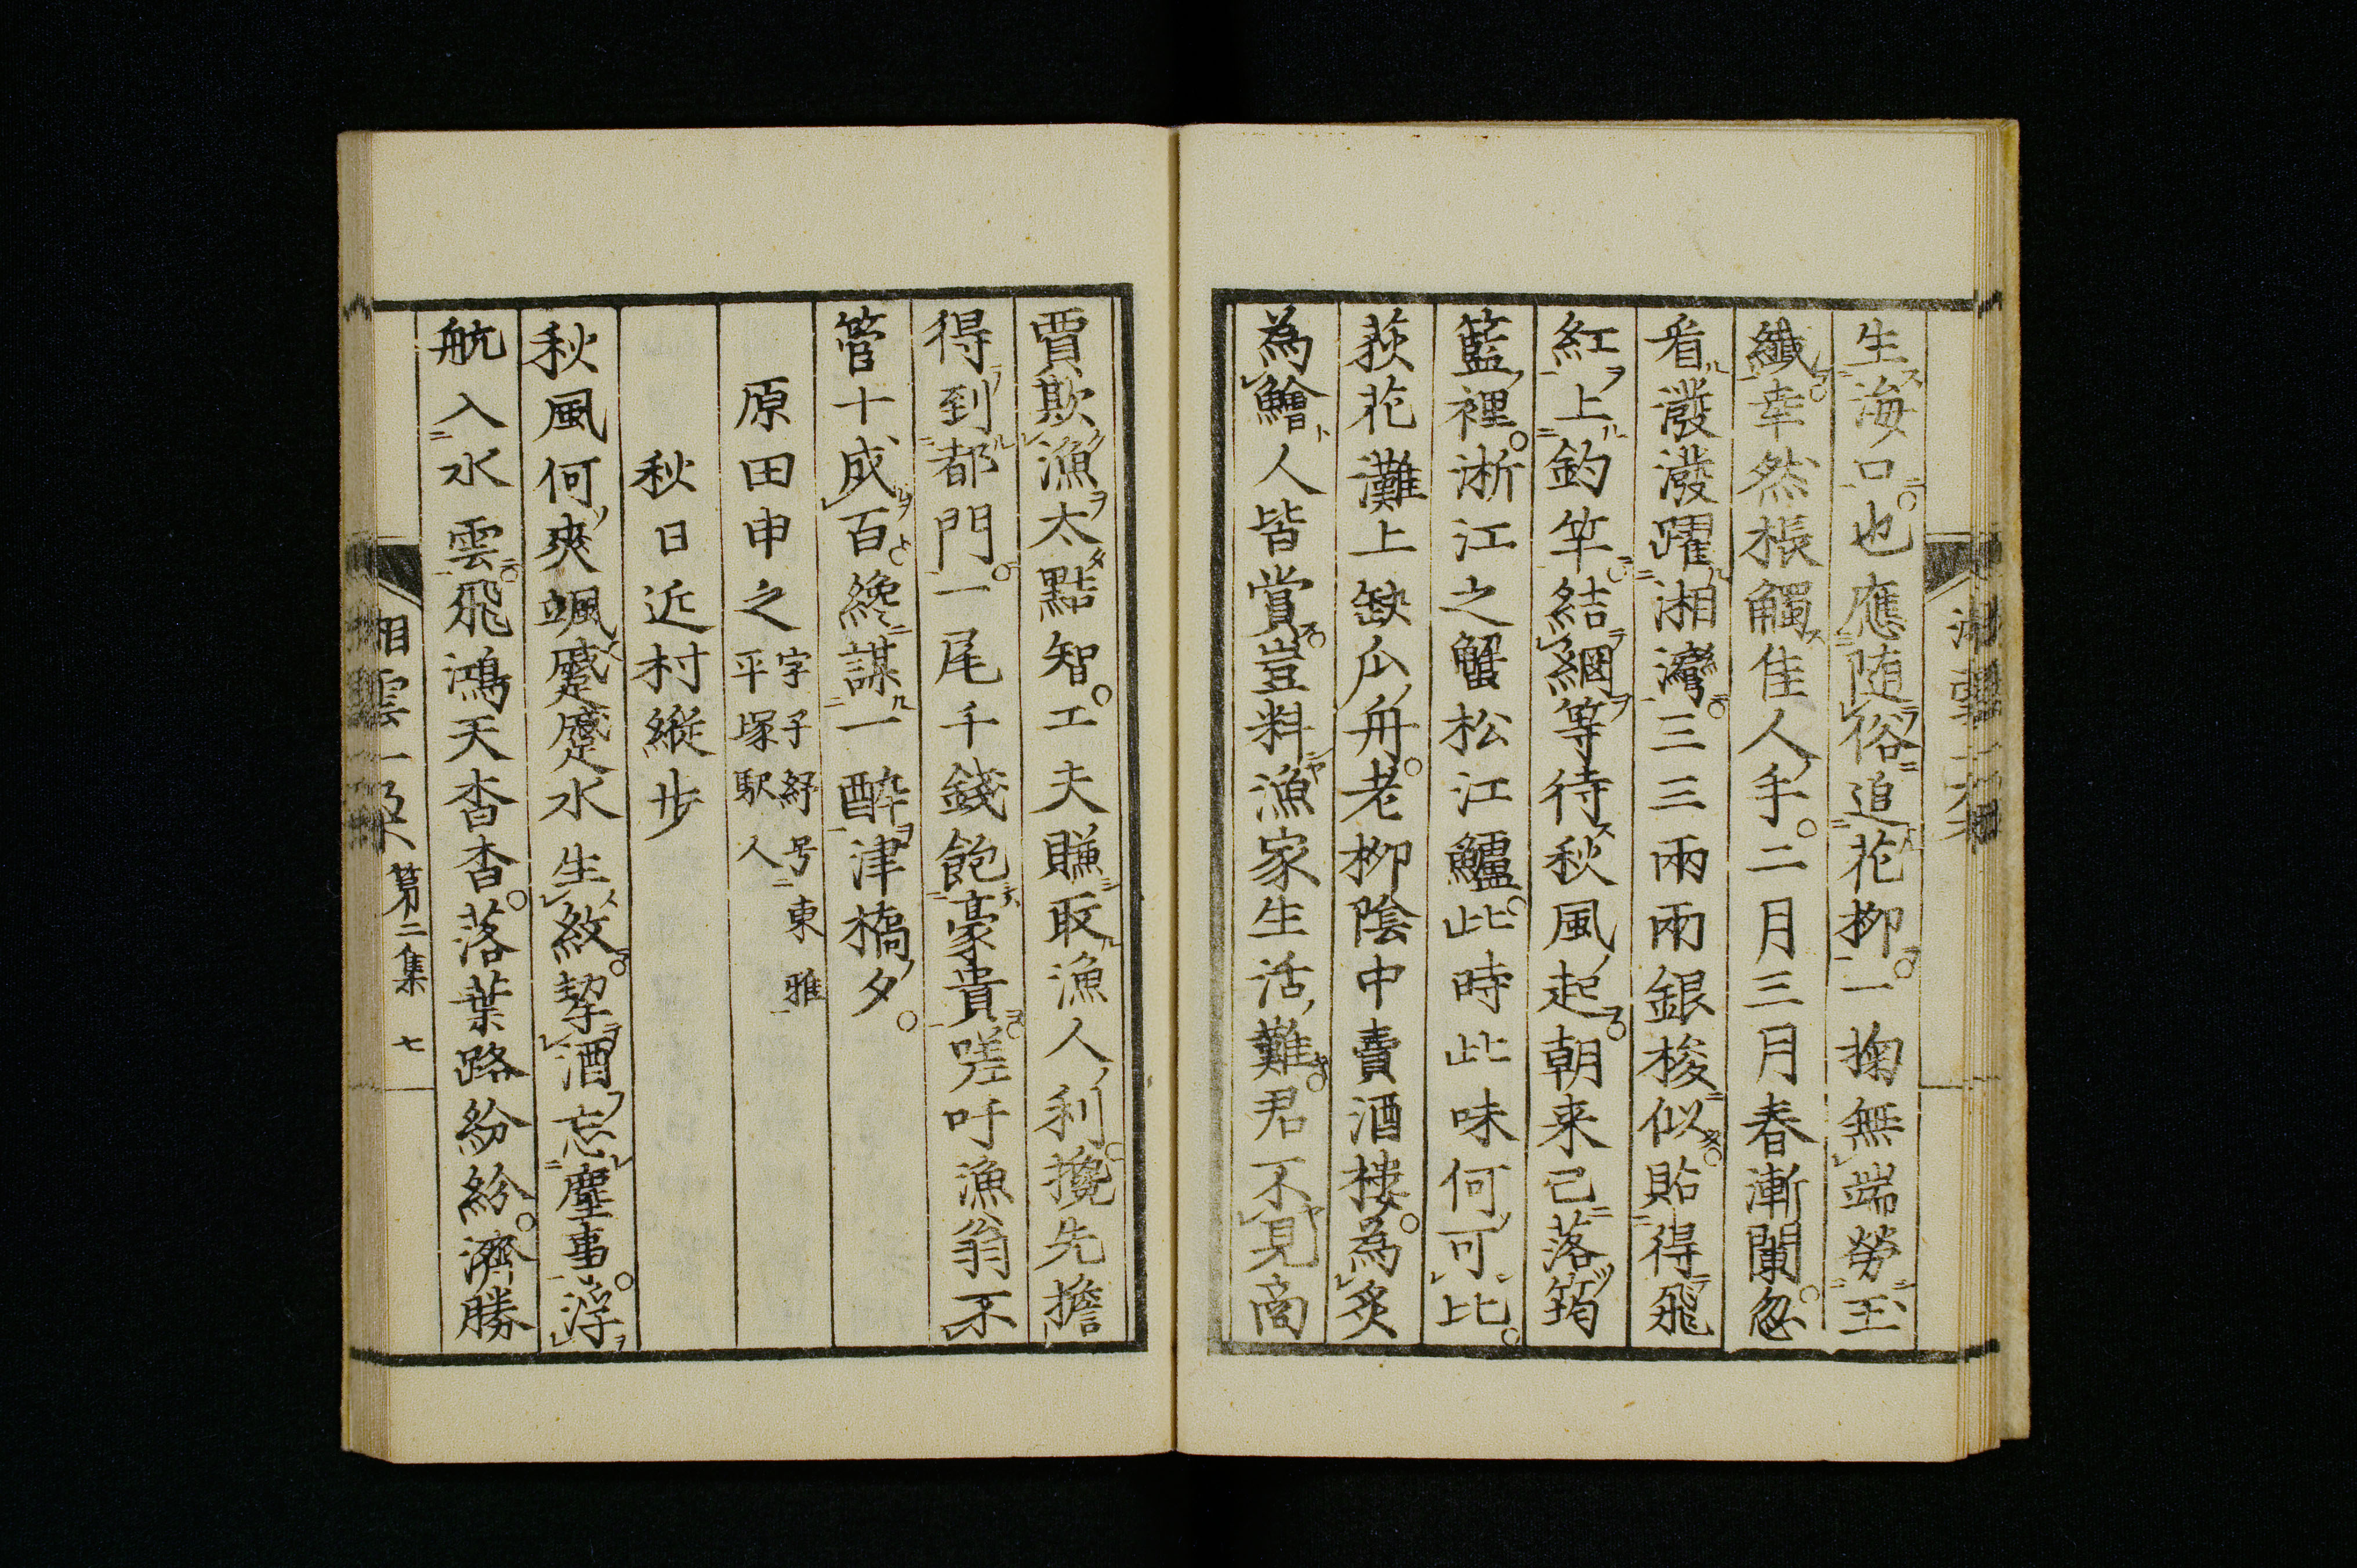 生海口也應随俗追花柳一掬無端勞玉
纎幸然棖觸佳人手二月三月春漸闌忽
看潑潑躍湘灣三三兩兩銀梭似貽得飛
紅上釣竿結網等待秋風起朝来已落筠
籃裡淅江之蟹松江鱸此時此味何可比
荻花灘上缺瓜舟老柳陰中賣酒樓為炙
為鱠人皆賞豈料漁家生活難君不見商
賈欺漁太黠智工夫賺取漁人利攙先擔
得到都門一尾千錢飽豪貴嗟吁漁翁不
管十成百纔謀一醉津橋夕
原田申之字子紓号東雅
平塚駅人
秋日近村縦步
秋風何爽颯蹙蹙水生紋挈酒忘塵事浮
航入水雲飛鴻天杳杳落葉路紛紛濟勝
湘雲一尺第二集 七